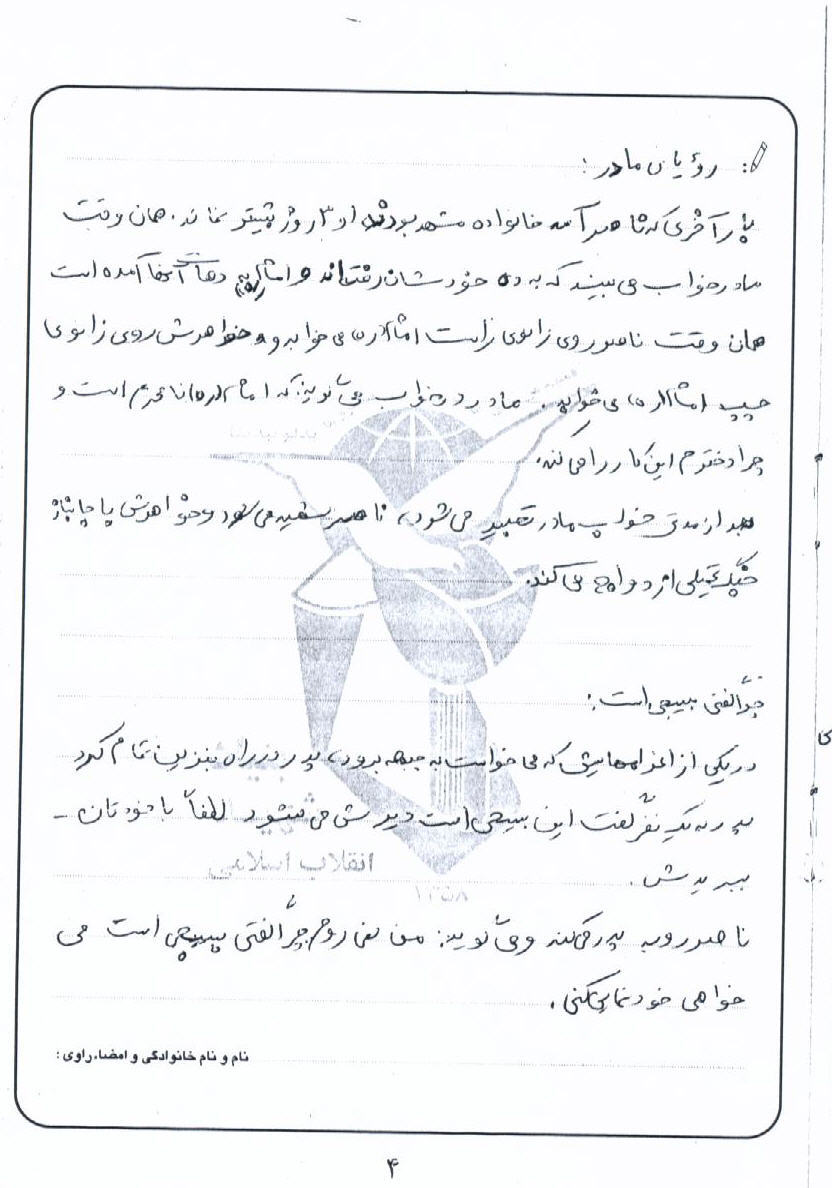 رؤیای مادر:
بار آخری که ناصر آمد خانواده مشهد بودند او ۳ روز بیشتر نماند. همان وقت
مادر خواب می بیند که به ده خودشان رفته اند و امام(ره) به دهات آنجا آمده است
همان وقت ناصر روی زانوی راست امام(ره) می خوابد و خواهرش روی زانوی
چپ امام(ره) می خوابد. مادر در خواب می گوید: که امام(ره) نامحرم است و
چرا دخترم این کار را می کند.
بعد از مدتی خواب مادر تعبیر می شود، ناصر شهید می شود و خواهرش با جانباز
جنگ تحمیلی ازدواج می کند.
چرا گفتی بسیجی است:
در یکی از اعزامهایش که می خواست به جبهه برود، پدر در راه بنزین تمام کرد
پدر به یک نفر گفت این بسیجی است دیرش می شود لطفاً با خودتان -
ببریدش.
ناصر رو به پدر می کند و می گوید: من نمی روم چرا گفتی بسیجی است می
خواهی خودنمایی کنی.
انقلاب اسلامی
۱۳۵۸
نام و نام خانوادگی و امضاء راوی:
۴